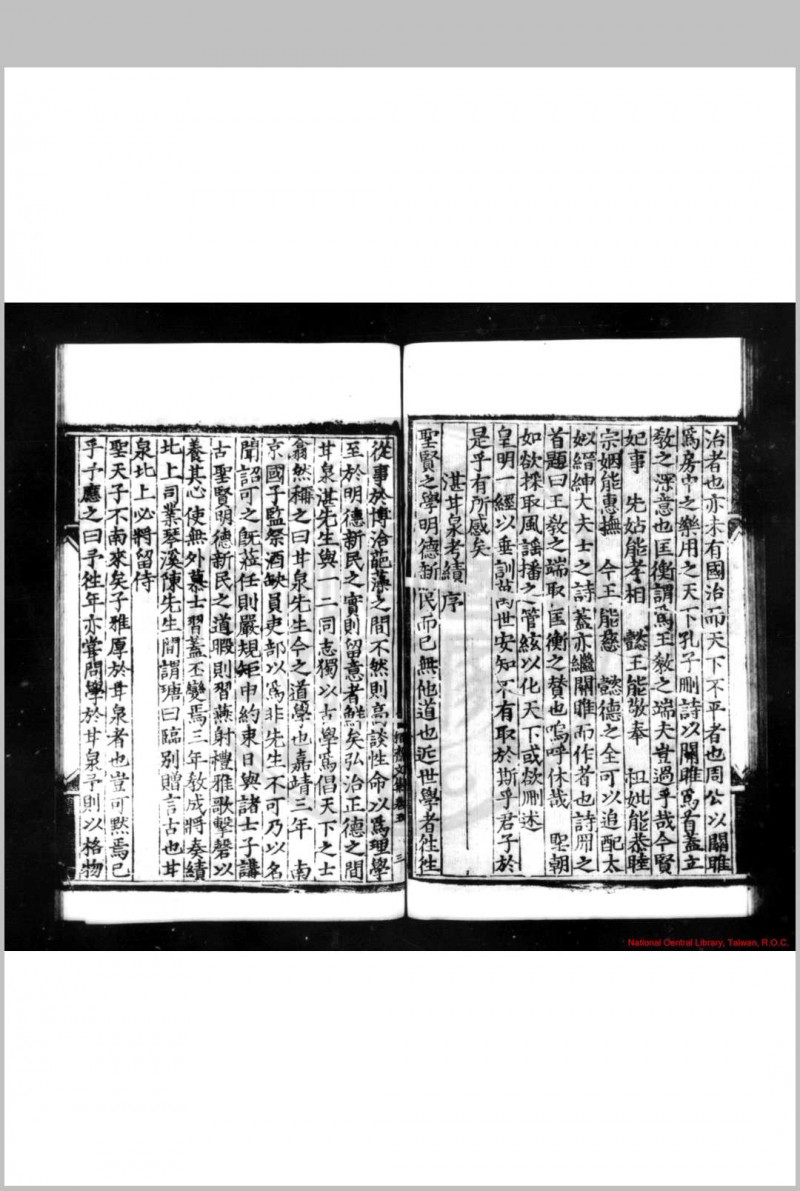 治者也亦未有國治而天下不平者也周公以關雎
爲房中之樂用之天下孔子刪詩以關雎爲首蓋立
教之深意也匡衡謂爲王教之端夫豈過乎哉今賢
妃事　先姑能孝相　懿王能敬奉　祖妣能恭睦
宗姻能惠撫　今王能慈　懿德之全可以追配太
姒縉紳大夫士之詩蓋亦繼關雎而作者也詩册之
首題曰王教之端取匡衡之賛也嗚呼休哉　聖朝
如欲採取風謡播之管絃以化天下或欲刪述
皇明一經以垂訓萬世安知不有取於斯乎君子於
是乎有所感矣
湛甘泉考績序
聖賢之學明德新民而已無他道也近世學者徃徃
從事於博洽葩藻之間不然則高談性命以爲理學
至於明德新民之實則留意者鮮矣弘治正德之間
甘泉湛先生與一二同志獨以古學爲倡天下之士
翕然稱之曰甘泉先生今之道學也嘉靖三年　南
京國子監祭酒缺員吏部以爲非先生不可乃以名
聞詔可之既蒞任則嚴規矩申約束日與諸士子講
古聖賢明德新民之道暇則習燕射禮雅歌擊磬以
養其心使無外慕士習蓋丕變焉三年教成將奏績
北上司業琴溪陳先生開謂瑭曰臨別贈言古也甘
泉北上必將留侍
聖天子不南來矣子雅厚於甘泉者也豈可黙焉已
乎予應之曰予徃年亦嘗問學於甘泉予則以格物
文集卷五　三
National Central Library, Taiwan, R.O.C.